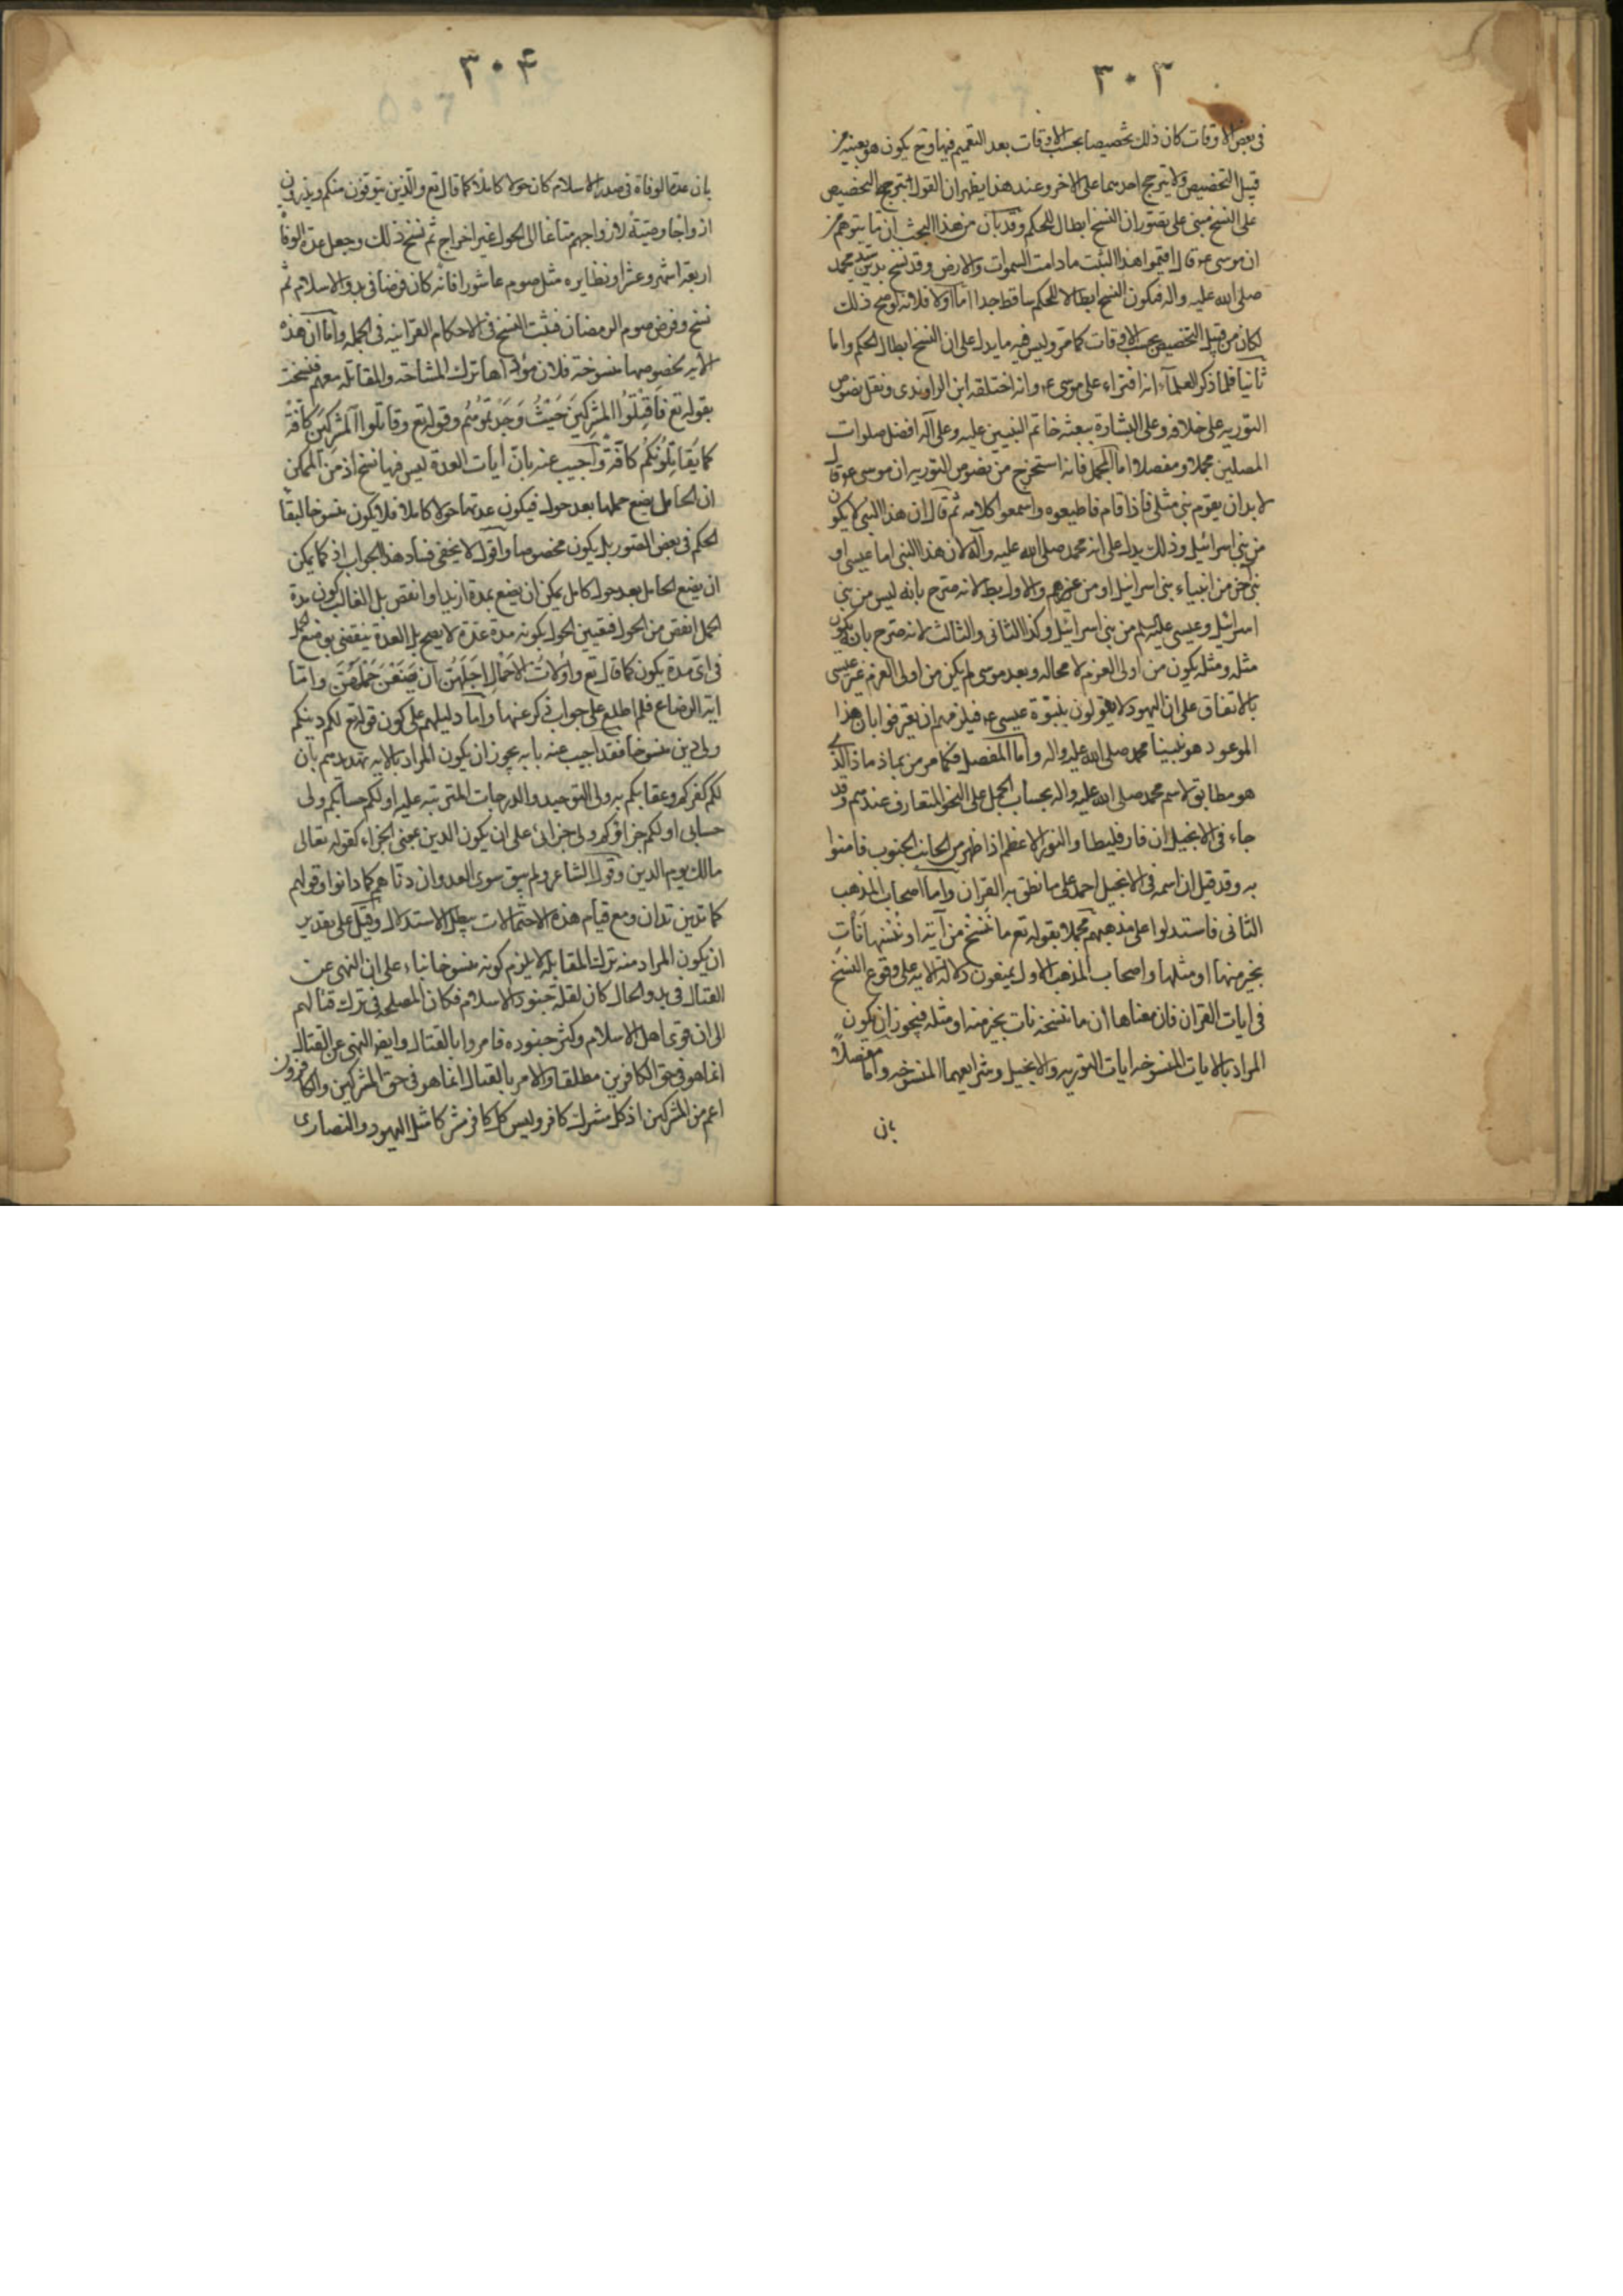 ٣٠٣
فى بعض الاوقات كان ذلك تخصيصا بحسب الاوقات بعد التعميم فيها وح يكون هو بعينه من
قبيل التخصيص ولا يترجح احدهما على الاخر وعند هذا يظهر ان القول بترجيح التخصيص
على النسخ مبنى على تصور ان النسخ ابطال للحكم وقد بان من هذا البحث ان ما يتوهم من
ان موسى ع قال اقيموا هذا السبت ما دامت السموات والارض وقد نسخ بدين محمد
صلى الله عليه واله فيكون النسخ ابطالا للحكم ساقط جدا اما اولا فلانه لو صح ذلك
لكان من قبيل التخصيص بحسب الاوقات كما مر وليس فيه ما يدل على ان النسخ ابطال الحكم واما
ثانيا فلما ذكر العلماء انه افتراء على موسى ع وانه اختلقه ابن الراوندى ونقل نصوص
التوريه على خلافه وعلى البشارة ببعثه خاتم النبيين عليه وعلى آله افضل صلوات
المصلين مجملا ومفصلا اما المجمل فانه استخرج من نصوص التوريه ان موسى ع قال
لا بد ان يقوم نبى مثلى فاذا قام فاطيعوه واسمعوا كلامه ثم قال ان هذا النبى لا يكون
من بنى اسرائيل وذلك يدل على انه محمد صلى الله عليه وآله لان هذا النبى اما عيسى او
نبى آخر من انبياء بنى اسرائيل او من غيرهم والاول بط لانه صرح بانه ليس من بنى
اسرائيل وعيسى عليه السلم من بنى اسرائيل وكذا الثانى والثالث لانه صرح بانه يكون
مثله ومثله يكون من اولى العزم لا محاله وبعد موسى لم يكن من اولى العزم غير عيسى
بالاتفاق على ان اليهود لا يقولون بنبوة عيسى ع فيلزمهم ان يعترفوا بان هذا
الموعود هو نبينا محمد صلى الله عليه واله واما المفصل فكما مر من بماذ ماذ الذى
هو مطابق لاسم محمد صلى الله عليه واله بحساب الجمل على النحو المتعارف عندهم وقد
جاء فى الانجيل ان فارقليطا والنور الاعظم اذا ظهر من الجانب الجنوب فامنوا
به وقد قيل ان اسمه فى الانجيل احمد على ما نطق به القران واما اصحاب المذهب
الثانى فاستدلوا على مذهبهم مجملا بقوله تع ما ننسخ من آية او ننسها نأت
بخير منها او مثلها واصحاب المذهب الاول يمنعون دلالة الايه على وقوع النسخ
فى ايات القران فان معناها ان ما ننسخه نات بخير منه او مثله فيجوز ان يكون
المراد بالايات المنسوخه ايات التوريه والانجيل وشرايعهما المنسوخه واما مفصلا
بان
٣٠۴
بان عدة الوفاة فى صدر الاسلام كان حولا كاملا كما قال تع والذين يتوفون منكم ويذرون
ازواجا وصية لازواجهم متاعا الى الحول غير اخراج ثم نسخ ذلك وجعل عدة الوفاة
اربعة اشهر وعشرا ونظايره مثل صوم عاشورا فانه كان فرضا فى بدو الاسلام ثم
نسخ وفرض صوم الرمضان فثبت النسخ فى الاحكام القرانيه فى الجمله واما ان هذه
الايه بخصوصها منسوخه فلان مؤداها ترك المشاحة والمقاتله معهم فنسخت
بقوله تع فاقتلوا المشركين حيث وجدتموهم وقوله تع وقاتلوا المشركين كافة
كما يقاتلونكم كافة واجيب عنه بان ايات العدة ليس فيها نسخ اذ من الممكن
ان الحامل يضع حملها بعد حول فيكون عدتها حولا كاملا فلا يكون منسوخا لبقاء
الحكم فى بعض الصور بل يكون مخصوصا واقول لا يخفى فساد هذا الجواب اذ كما يمكن
ان يضع الحامل بعد حول كامل يمكن ان يضع بمدة ازيد او انقص بل الغالب كون مدة
الحمل انقص من الحول فتعيين الحول بكونه مدة عدة لا يصح بل العدة ينقضى بوضع الحمل
فى اى مدة يكون كما قال تع واولات الاحمال اجلهن ان يضعن حملهن واما
اية الرضاع فلم اطلع على جواب ذكر عنها واما دليلهم على كون قوله تع لكم دينكم
ولى دين منسوخا فقد اجيب عنه بانه يجوز ان يكون المراد بالايه تهديدهم بان
لكم كفركم وعقابكم به ولى التوحيد والدرجات المترتبه عليه او لكم حسابكم ولى
حسابى او لكم جزاؤكم ولى جزائى على ان يكون الدين بمعنى الجزاء كقوله تعالى
مالك يوم الدين وقول الشاعر ولم يبق سوى العدوان دناهم كما دانوا وقولهم
كما تدين تدان ومع قيام هذه الاحتمالات يبطل الاستدلال وقيل على تقدير
ان يكون المراد منه ترك المقابله لا يلزم كونه منسوخا بناء على ان النهى عن
القتال فى بدو الحال كان لقلة جنود الاسلام فكان المصلحه فى ترك قتالهم
الى ان قوى اهل الاسلام وكثر جنوده فامروا بالقتال وايضا النهى عن القتال
انما هو فى حق الكافرين مطلقا والامر بالقتال انما هو فى حق المشركين والكافرون
اعم من المشركين اذ كل مشرك كافر وليس كل كافر مشركا مثل اليهود والنصارى